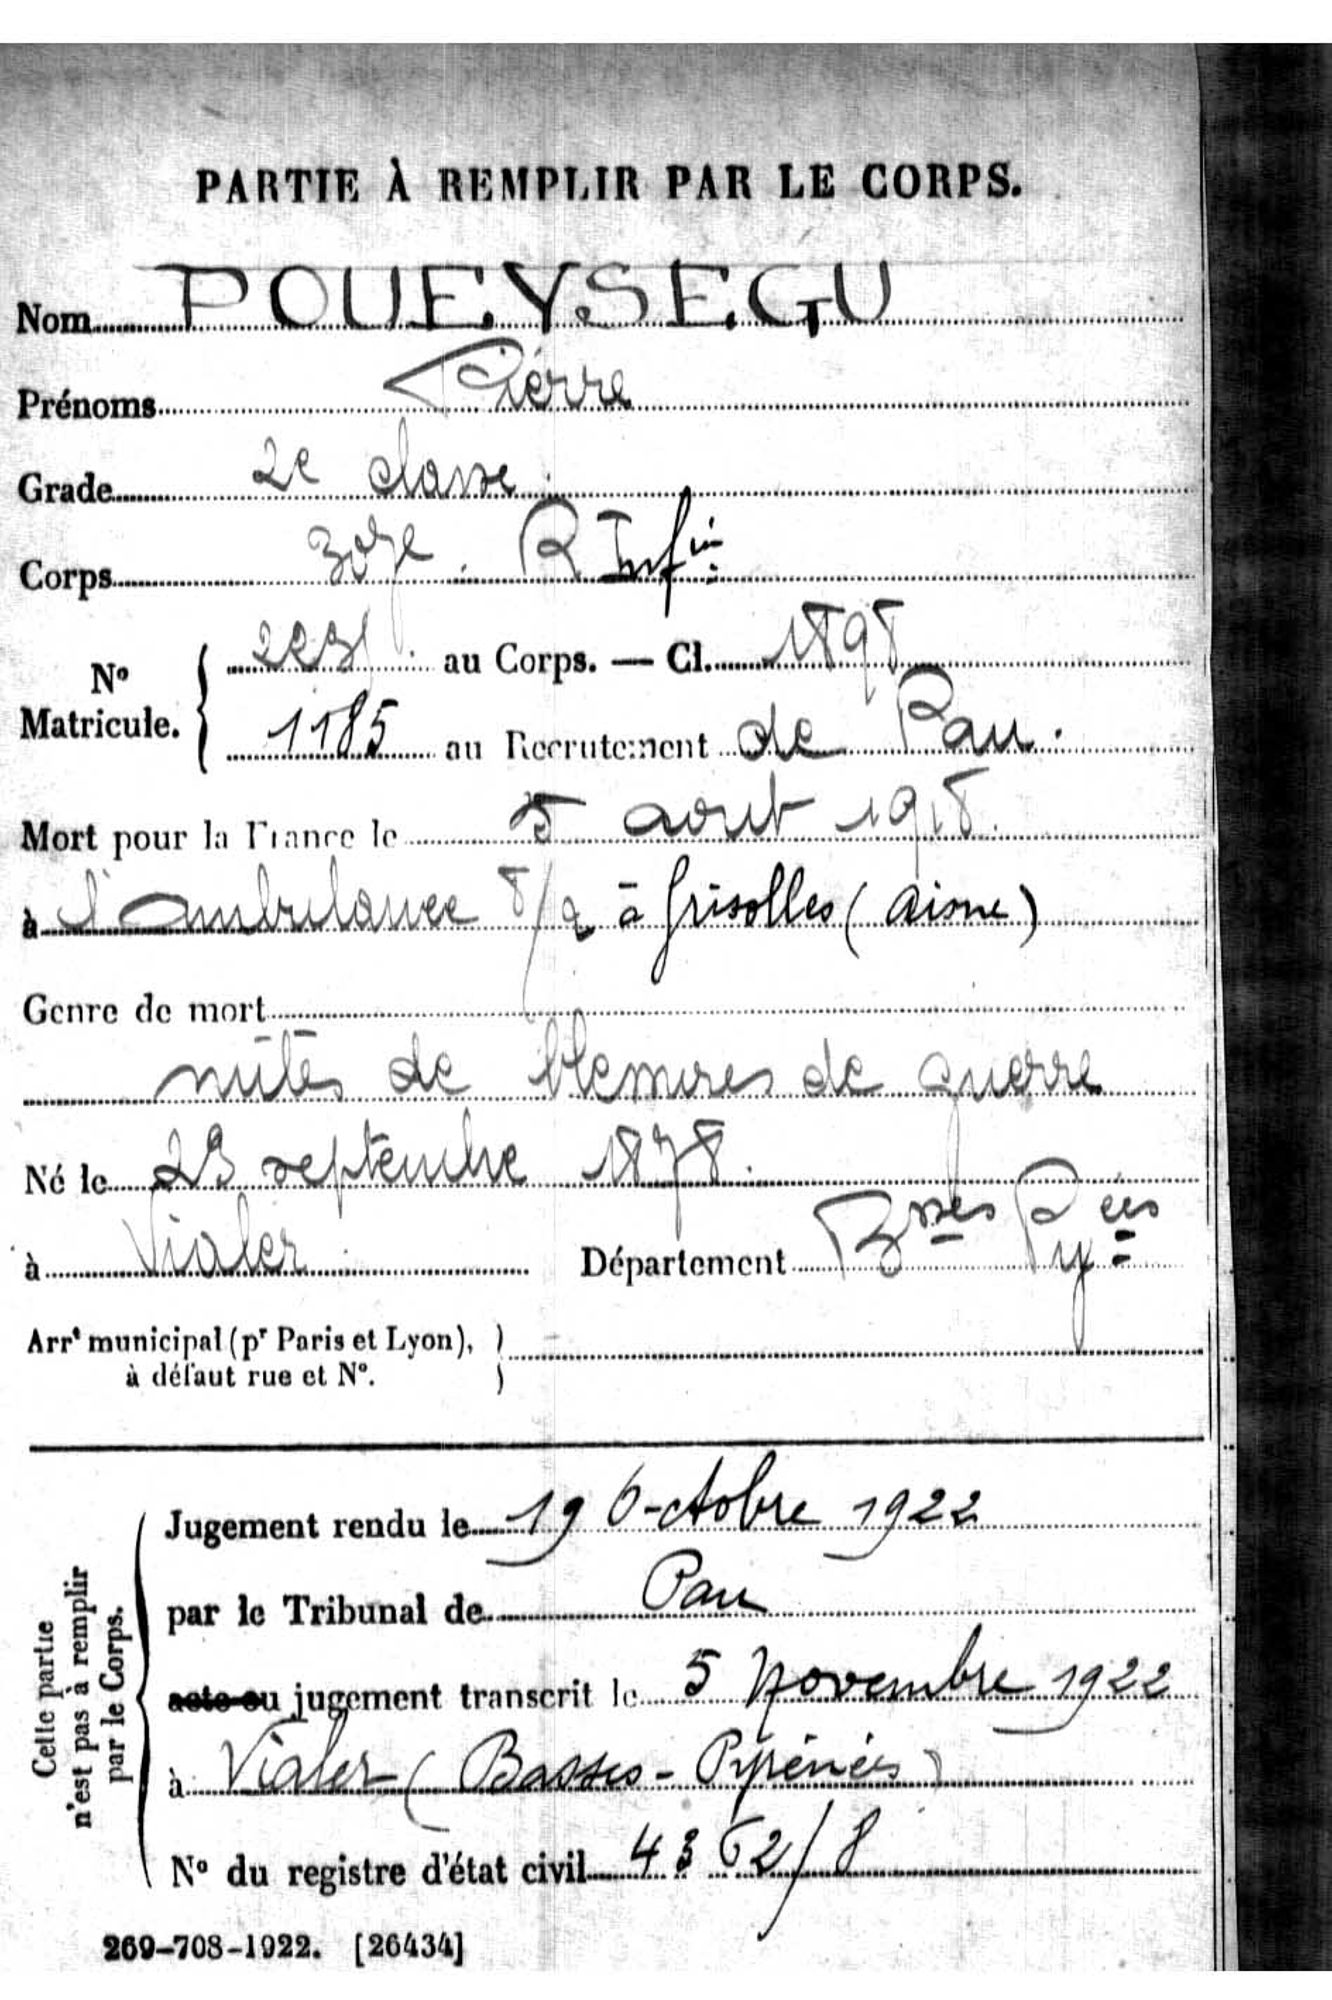 PARTIE À REMPLIR PAR LE CORPS.
Nom POUEYSEGU
Prénoms Pierre
Grade 2e classe
Corps R Infie
No Matricule. au Corps. — Cl. 1898
1185 au Recrutement de Pau.
Mort pour la France le 5 aout 1918.
à l'Ambulance 8/2 à Grisolles (Aisne)
Genre de mort
suites de blessures de guerre
Né le 23 septembre 1878.
à Vialer Département Bsses Pyées
Arrt municipal (pr Paris et Lyon),
à défaut rue et No.
Cette partie
n'est pas à remplir
par le Corps.
Jugement rendu le 19 Octobre 1922
par le Tribunal de Pau
acte ou jugement transcrit le 5 Novembre 1922
à Vialer (Basses-Pyrénées)
No du registre d'état civil 4362/8
269-708-1922. [26434]